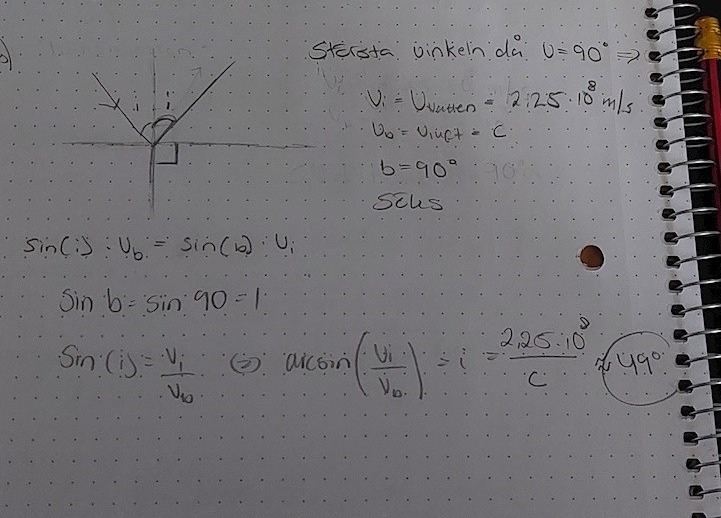 Största vinkeln då v=90° ⇒
i i
Vi = Vvatten = 2,25·10⁸ m/s
Vb = Vluft = C
b=90°
Söks
sin(i)·Vb = sin(b)·Vi
Sin b = sin 90 = 1
Sin(i) = Vi/Vb ⇔ arcsin(Vi/Vb) = i = 2,25·10⁸/C ≈ 49°